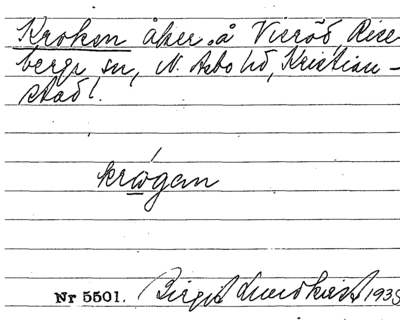 Kroken åker å Vieröd Rise
berga sn, N. Åsbo hd, Kristian-
stad l.
krωgan
Nr 5501. Birgit Lundkvist 1935